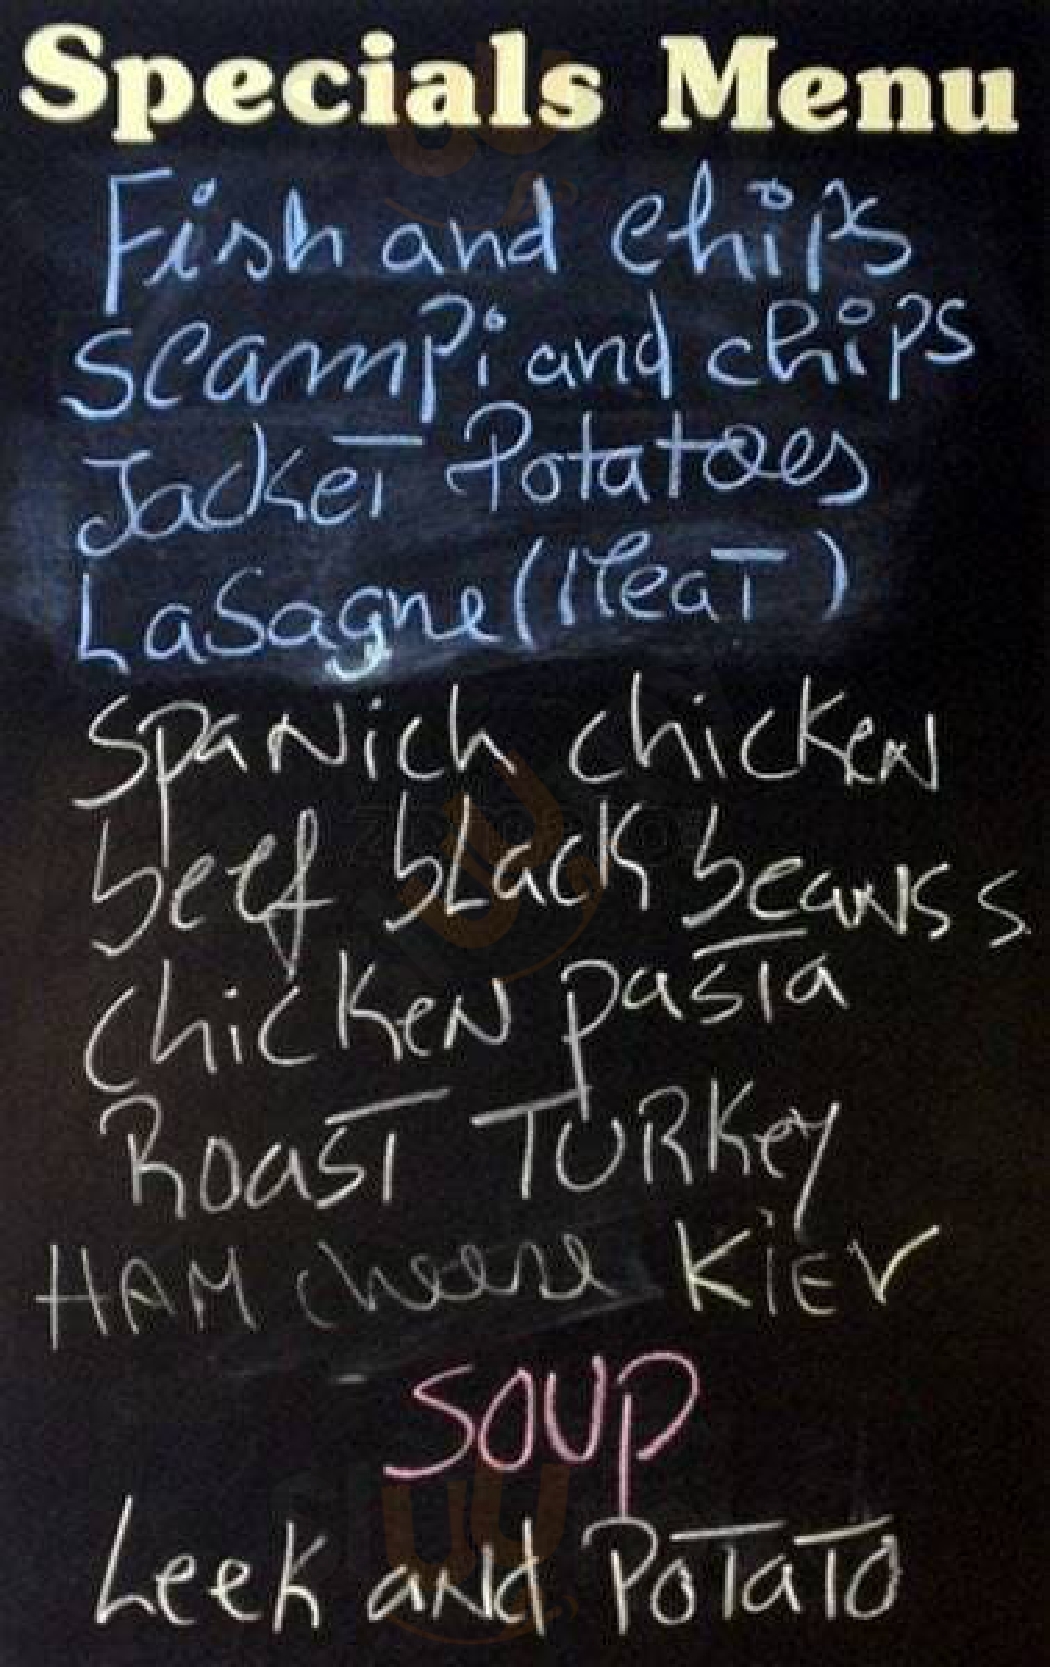 Specials Menu
Fish and chips
Scampi and chips
Jacket Potatoes
LaSagne (Meat)
Spanich chicken
beef black beans s
chicken pasta
Roast Turkey
HAM cheese KiEV
SOUP
Leek and Potato